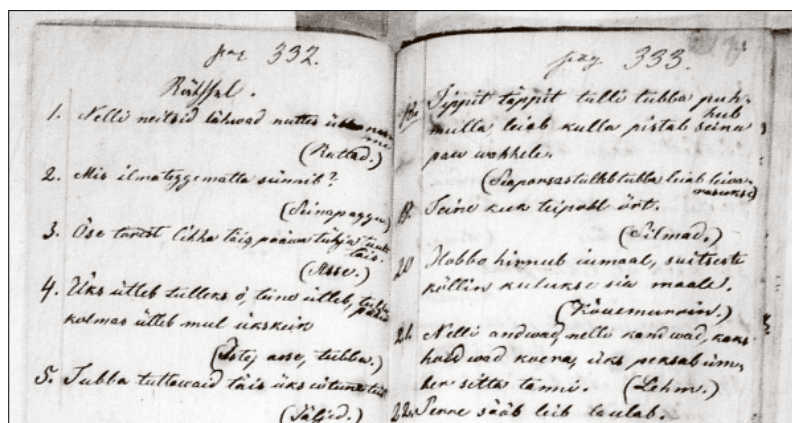 pag 332.
Räthsel.
1. Nelli neitsid lähwad nuttes
(Rattad.)
2. Mis ilmateggematta sünnib?
(Seinapaggu.)
3. Öse tarest likha täis, pääwa tühja
täis.
(Asse.)
4. Üks ütleb tulleks ö, teine ütleb,
kolmas ütleb mul ükskeik
(Istej asse, tubba.)
5. Tubba tuttawaid täis üks
(Jäljed.)
pag 333.
Tippit täppit tulli tubba puh-
hub
mulla leiab kulla pistab seina
wahhele.
tubba leiab leiwa-
19. Seine kuk teiwast ört.
(Silmad.)
20 Hobbo hirnub iumaal, suitsest
köllin kulukse sia maale.
(Kõuemürrin.)
21. Nelli andwad, nelli kandwad, kaks
haldwad koera, üks peksab üm-
ber sitta tanni. (Lehm.)
22. Senne sääb leib laulab.